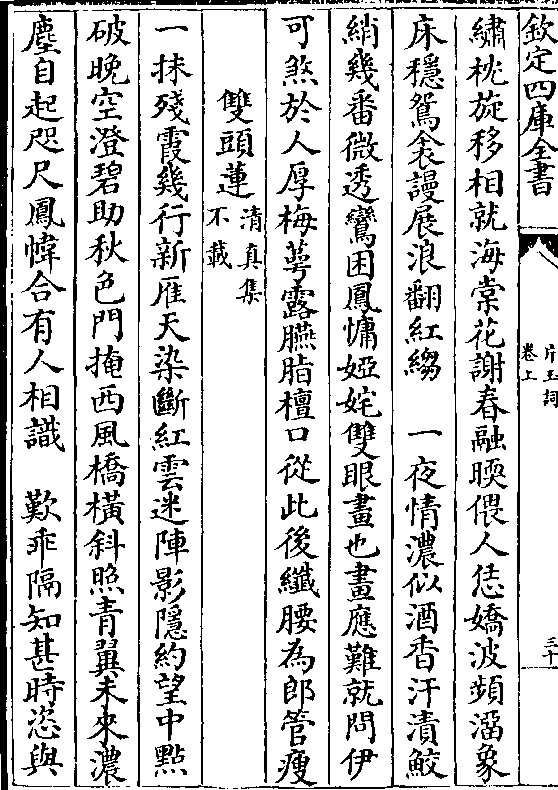 欽定四庫全書
片玉詞
卷上
三十
繡枕旋移相就海棠花謝春融暖偎人恁嬌波頻溜象
床穩鴛衾謾展浪翻紅縐　一夜情濃似酒香汗漬鮫
綃幾番微透鸞困鳳慵婭姹雙眼畫也畫應難就問伊
可煞於人厚梅萼露臙脂檀口從此後纖腰為郎管瘦
雙頭蓮清真集不載
一抹殘霞幾行新雁天染斷紅雲迷陣影隱約望中點
破晚空澄碧助秋色門掩西風橋橫斜照青翼未來濃
塵自起咫尺鳳幃合有人相識　歎乖隔知甚時恣與